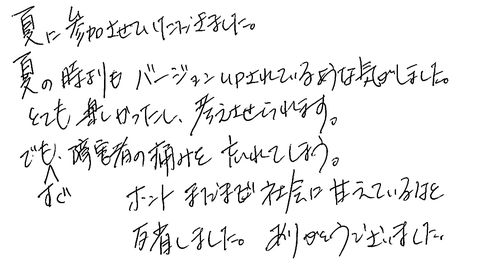 夏に参加させていただきました。
夏の時よりもバージョンupされているような気がしました。
とても楽しかったし、考えさせられます。
でも、すぐ障害者の痛みを忘れてしまう。
ホント まだまだ社会に甘えているなと
反省しました。ありがとうございました。